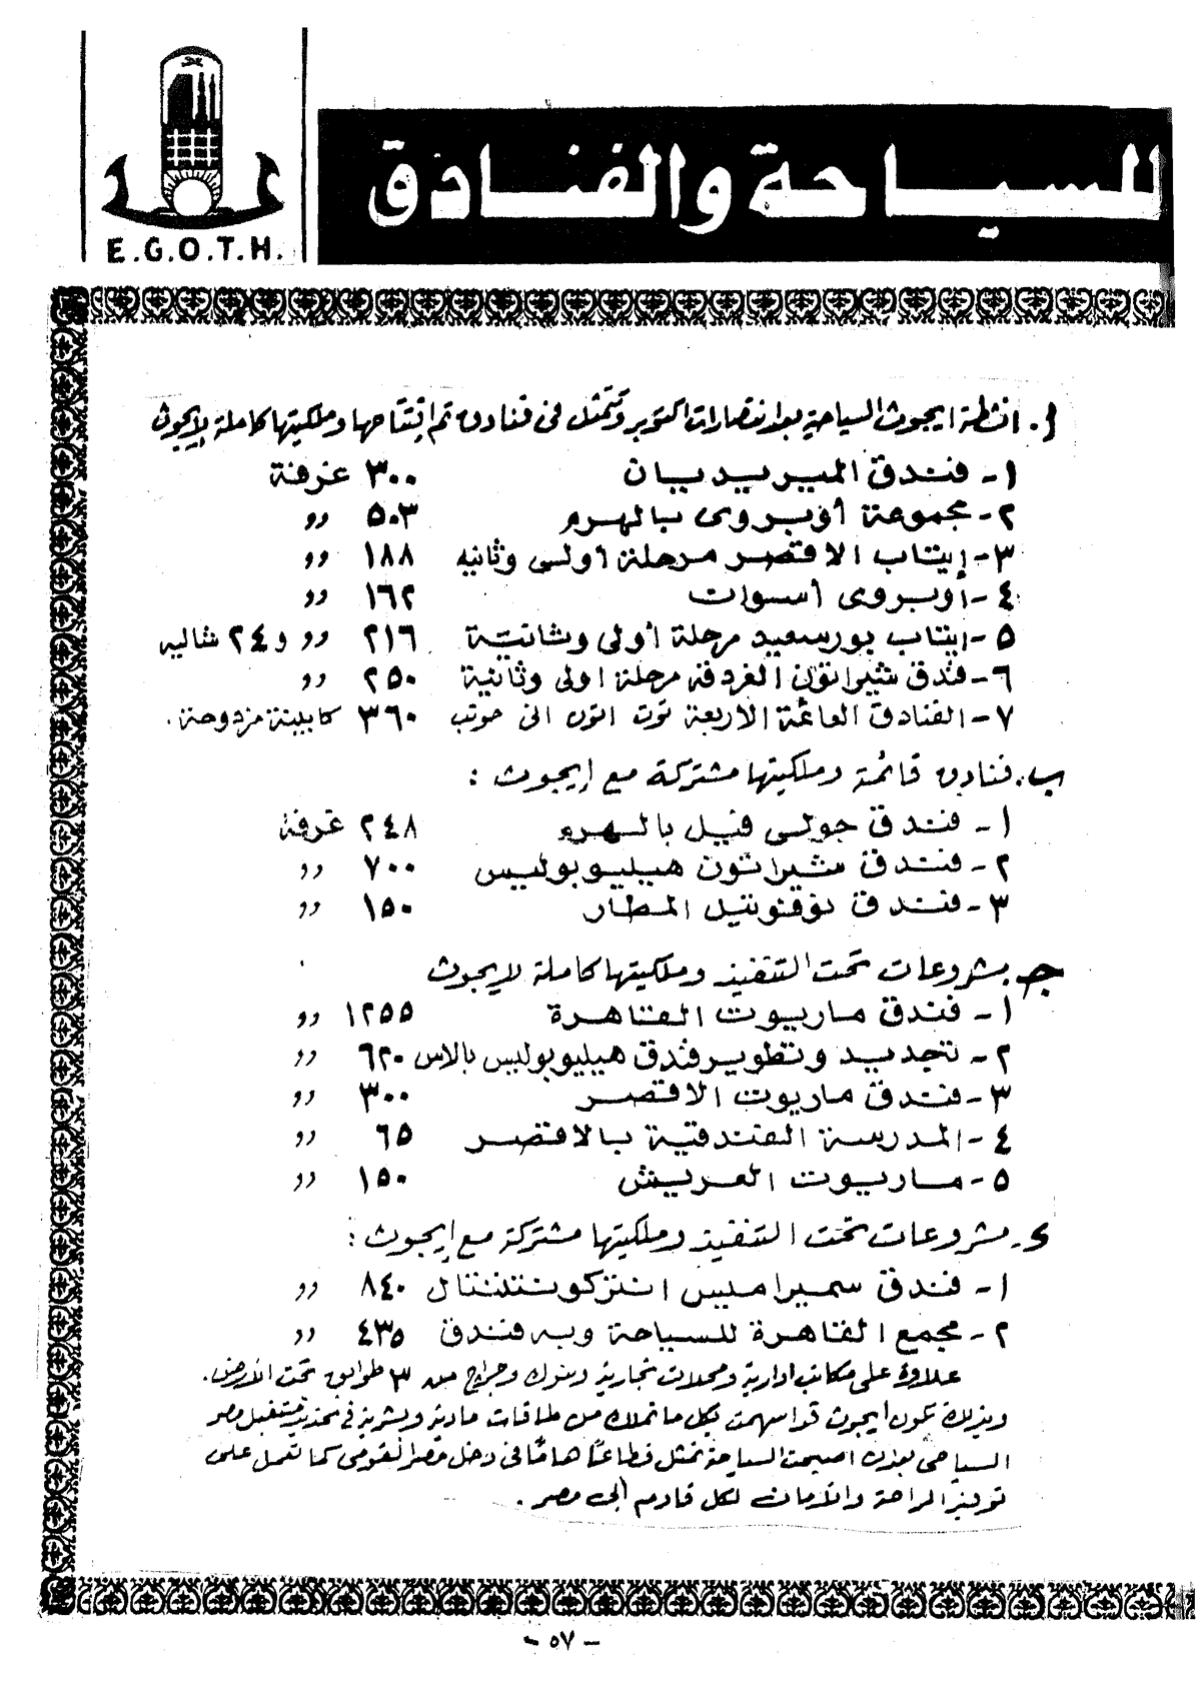 للسياحة والفنادق
E.G.O.T.H.
أ. انشطة ايجوث السياحية بعد انتصارات اكتوبر وتتمثل فى فنادق تم افتتاحها وملكيتها كاملة لايجوث
١- فندق الميريديان ٣٠٠ غرفة
٢- مجموعة أوبروى بالهرم ٥٠٣ رر
٣- إيتاب الاقصر مرحلة أولى وثانيه ١٨٨ رر
٤- أوبروى اسوان ١٦٢ رر
٥- ايتاب بورسعيد مرحلة أولى وثانية ٢١٦ رر و ٢٤ شاليه
٦- فندق شيراتون الغردقة مرحلة اولى وثانية ٢٥٠ رر
٧- الفنادق العائمة الاربعة توت اتون انى حوتب ٣٦٠ كابينة مزدوجة.
ب. فنادق قائمة وملكيتها مشتركة مع إيجوث :
١- فندق جولى فيل بالهرم ٢٤٨ غرفة
٢- فندق شيراتون هيليوبوليس ٧٠٠ رر
٣- فندق نوفوتيل المطار ١٥٠ رر
ج. مشروعات تحت التنفيذ وملكيتها كاملة لايجوث
١- فندق ماريوت القاهرة ١٢٥٥ رر
٢- تجديد وتطوير فندق هيليوبوليس بالاس ٦٢٠ رر
٣- فندق ماريوت الاقصر ٣٠٠ رر
٤- المدرسة الفندقية بالاقصر ٦٥ رر
٥- ماريوت العريش ١٥٠ رر
د. مشروعات تحت التنفيذ وملكيتها مشتركة مع إيجوث :
١- فندق سميراميس انتركونتننتال ٨٤٠ رر
٢- مجمع القاهرة للسياحة وبه فندق ٤٣٥ رر
علاوة على مكاتب ادارية ومحلات تجارية وبنوك وجراج من ٣ طوابق تحت الأرض.
وبذلك تكون ايجوث قد اسهمت بكل ما تملك من طاقات مادية وبشرية فى مستقبل مصر
السياحى بعد ان اصبحت السياحة تمثل قطاعًا هامًا فى دخل مصر القومى كما تعمل على
توفير الراحة والأمان لكل قادم إلى مصر.
- ٥٧ -